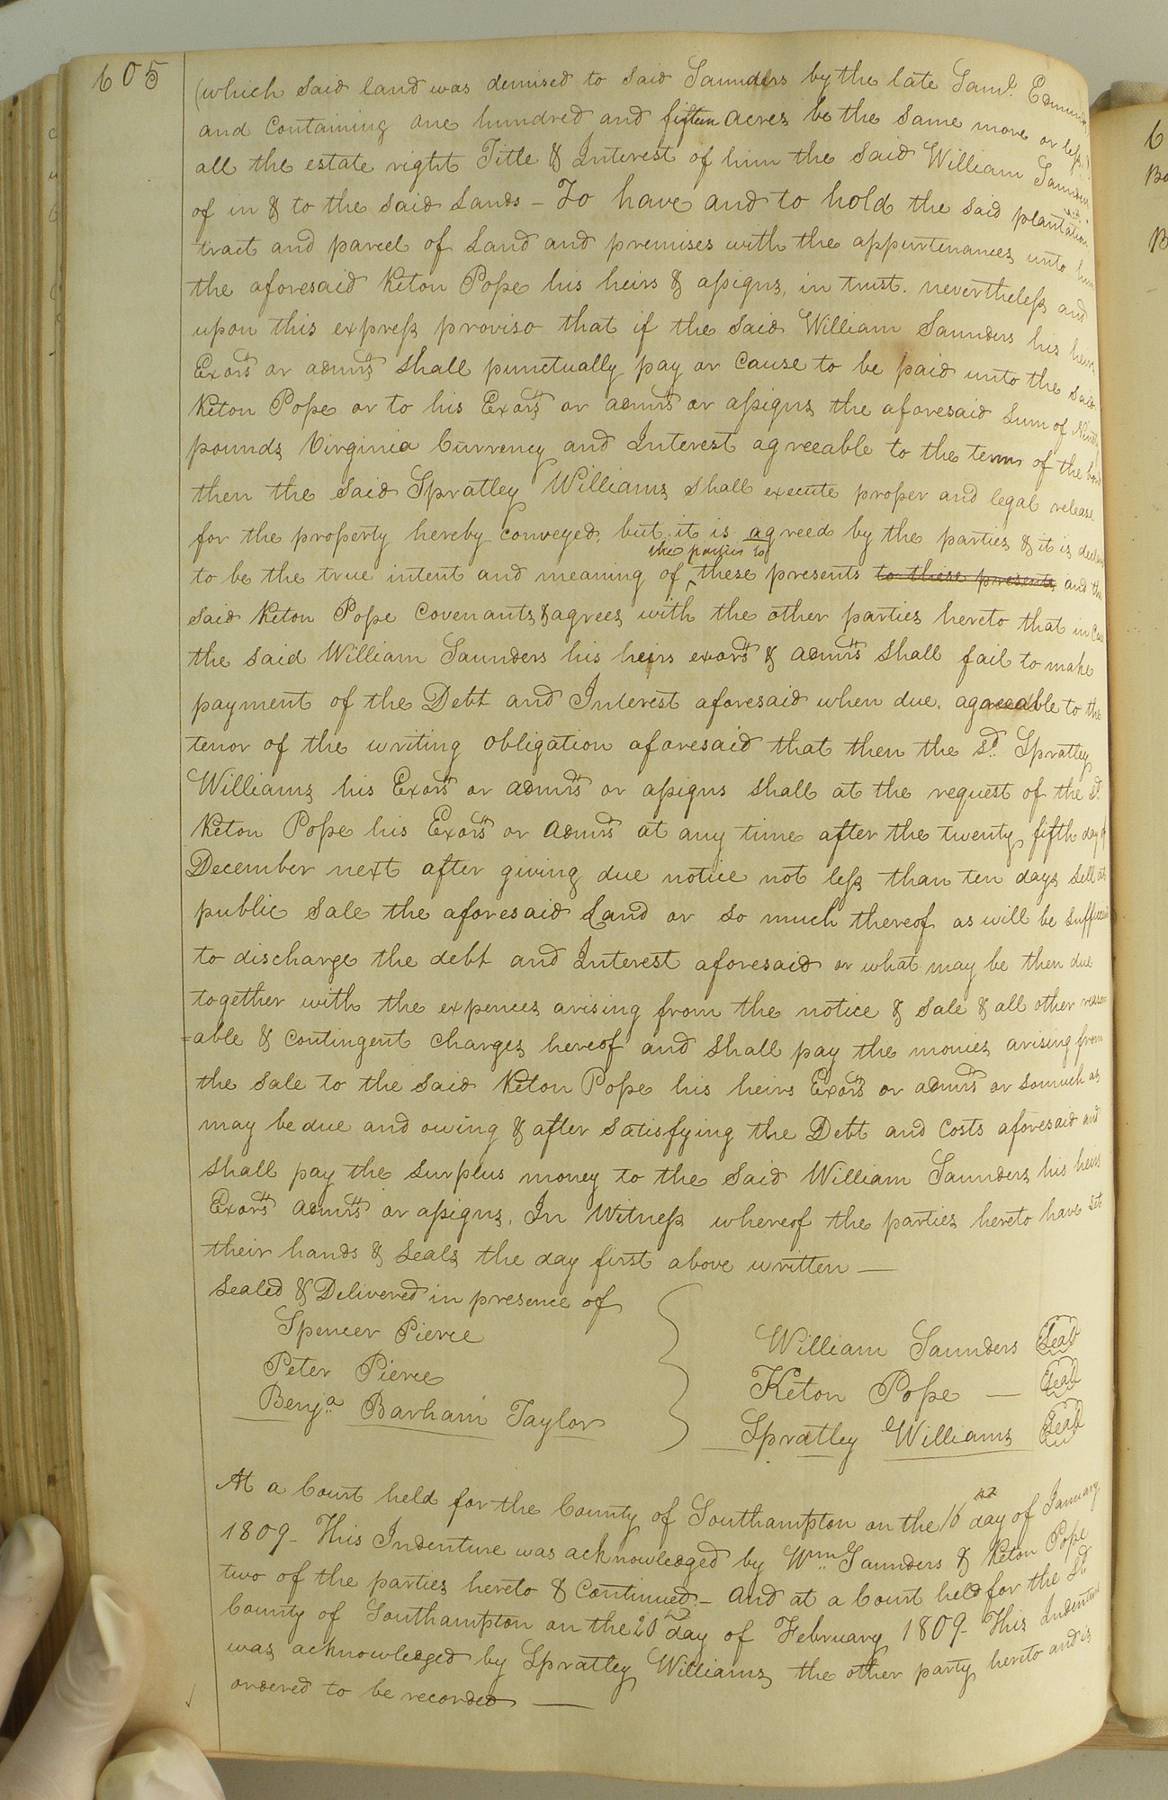 605
(which said land was demised to said Saunders by the late Saml. Edmunds
and Containing one hundred and fifteen acres be the same more or less)
all the estate right Title & Interest of him the said William Saunders
of in & to the said Lands - To have and to hold the said plantation
tract and parcel of Land and premises with the appurtenances unto him
the aforesaid Keton Pope his heirs & assigns, in trust. nevertheless and
upon this express proviso that if the said William Saunders his heirs
Exors or admrs shall punctually pay or cause to be paid unto the said
Keton Pope or to his Exors or admrs or assigns the aforesaid Sum of Ninety
pounds Virginia Currency and Interest agreeable to the terms of the bond
then the said Spratley Williams shall execute proper and legal release
for the property hereby conveyed, but it is agreed by the parties & it is declared
the parties to
to be the true intent and meaning of these presents to these presents and the
said Keton Pope Covenants & agrees with the other parties hereto that in Case
the said William Saunders his heirs exors & admrs shall fail to make
payment of the Debt and Interest aforesaid when due. agreeable to the
tenor of the writing obligation aforesaid that then the sd. Spratley
Williams his Exors or admrs or assigns shall at the request of the sd.
Keton Pope his Exors or admrs at any time after the twenty fifth day of
December next after giving due notice not less than ten days sell at
public Sale the aforesaid Land or so much thereof as will be sufficient
to discharge the debt and Interest aforesaid or what may be then due
together with the expences arising from the notice & sale & all other reason
=able & contingent charges hereof and shall pay the monies arising from
the sale to the said Keton Pope his heirs Exors or admrs or somuch as
may be due and owing & after satisfying the Debt and Costs aforesaid and
shall pay the surplus money to the said William Saunders his heirs
Exors admrs or assigns. In Witness whereof the parties hereto have set
their hands & seals the day first above written —
Sealed & Delivered in presence of
Spencer Pierce
Peter Pierce
Benja Barham Taylor
William Saunders Seal
Keton Pope — Seal
Spratley Williams Seal
At a Court held for the County of Southampton on the 16 day of January
1809 - This Indenture was acknowledged by Wm. Saunders & Keton Pope
two of the parties hereto & Continued - And at a Court held for the sd
County of Southampton on the 20 day of February 1809 - This Indenture
was acknowledged by Spratley Williams the other party hereto and is
ordered to be recorded —